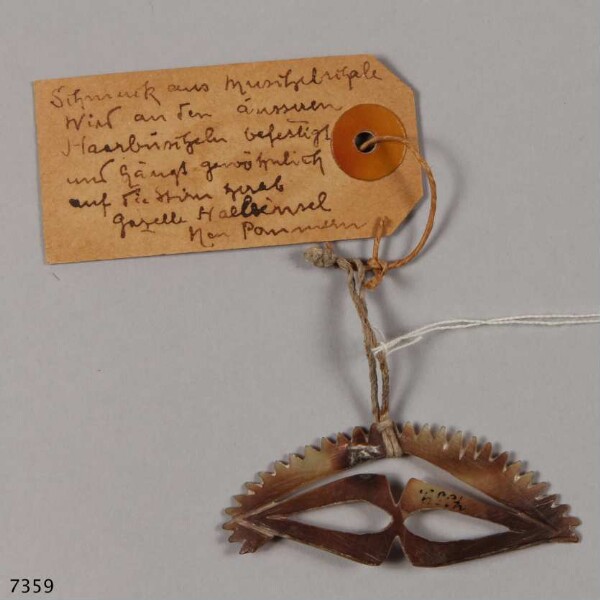 Schmuck aus Muschelschale
Wird an den äusseren
Haarbüscheln befestigt
und hängt gewöhnlich
auf die Stirn herab
Gazelle Halbinsel
Neu Pommern
7359